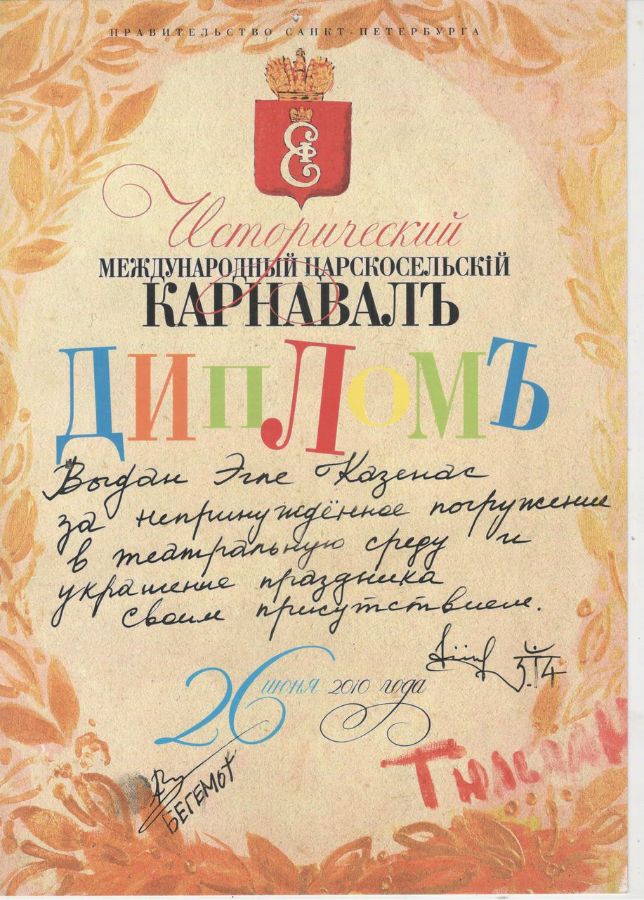 ПРАВИТЕЛЬСТВО САНКТ-ПЕТЕРБУРГА
Исторический
МЕЖДУНАРОДНЫЙ ЦАРСКОСЕЛЬСКІЙ
КАРНАВАЛЪ
ДИПЛОМЪ
Выдан Эгле Казенас
за непринуждённое погружение
в театральную среду и
украшение праздника
своим присутствием.
3.14
26 июня 2010 года
БЕГЕМОТ